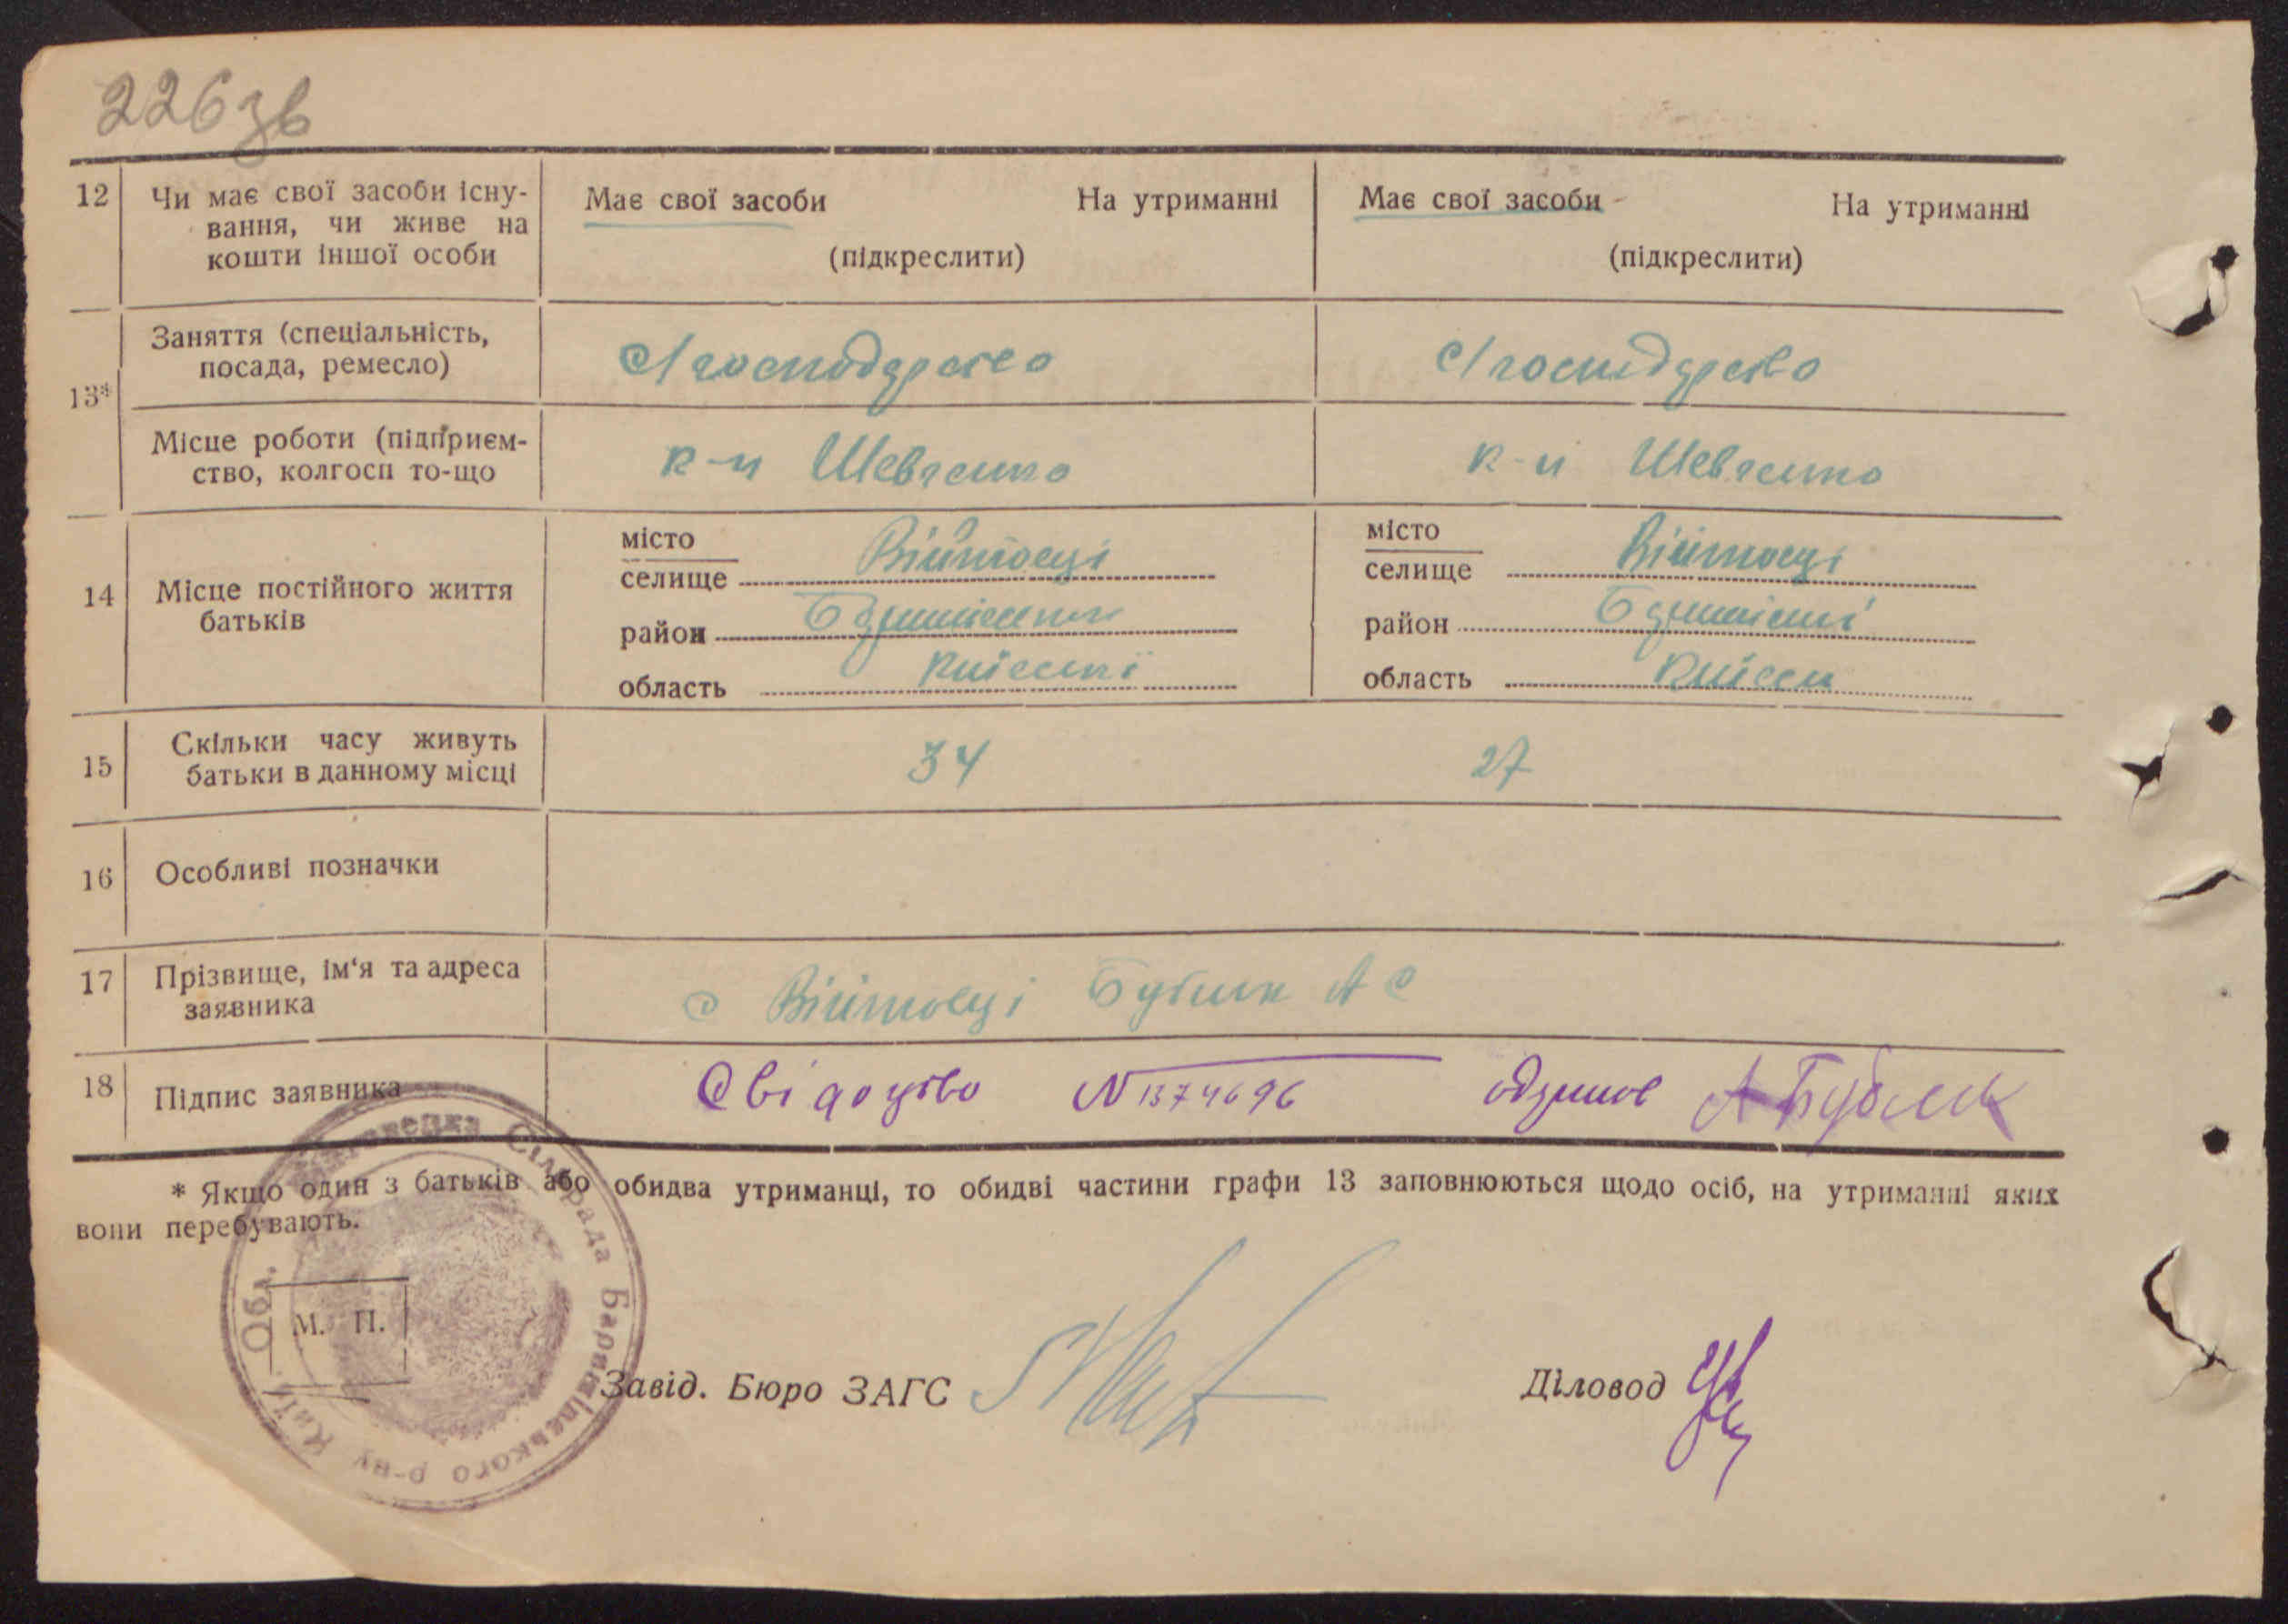 226 зв
12 Чи має свої засоби існу-
вання, чи живе на
кошти іншої особи
Має свої засоби На утриманні
(підкреслити)
Має свої засоби На утриманні
(підкреслити)
13*
Заняття (спеціальність,
посада, ремесло)
С/господарство
С/господарство
Місце роботи (підприєм-
ство, колгосп то-що
к-п Шевченко
к-п Шевченко
14 Місце постійного життя
батьків
місто
селище Війтовці
район
область Київські
місто
селище Війтовці
район
область Київськ
15 Скільки часу живуть
батьки в данному місці
34
27
16 Особливі позначки
17 Прізвище, ім‘я та адреса
заявника
с Війтовці Бублик А С
18 Підпис заявника
Свідоцтво N 1374696 одержав А Бублик
* Якщо один з батьків або обидва утриманці, то обидві частини графи 13 заповнюються щодо осіб, на утриманні яких
вони перебувають.
М. П.
Сільрада Баришівського р-ну Київ. Обл.
Завід. Бюро ЗАГС
Діловод